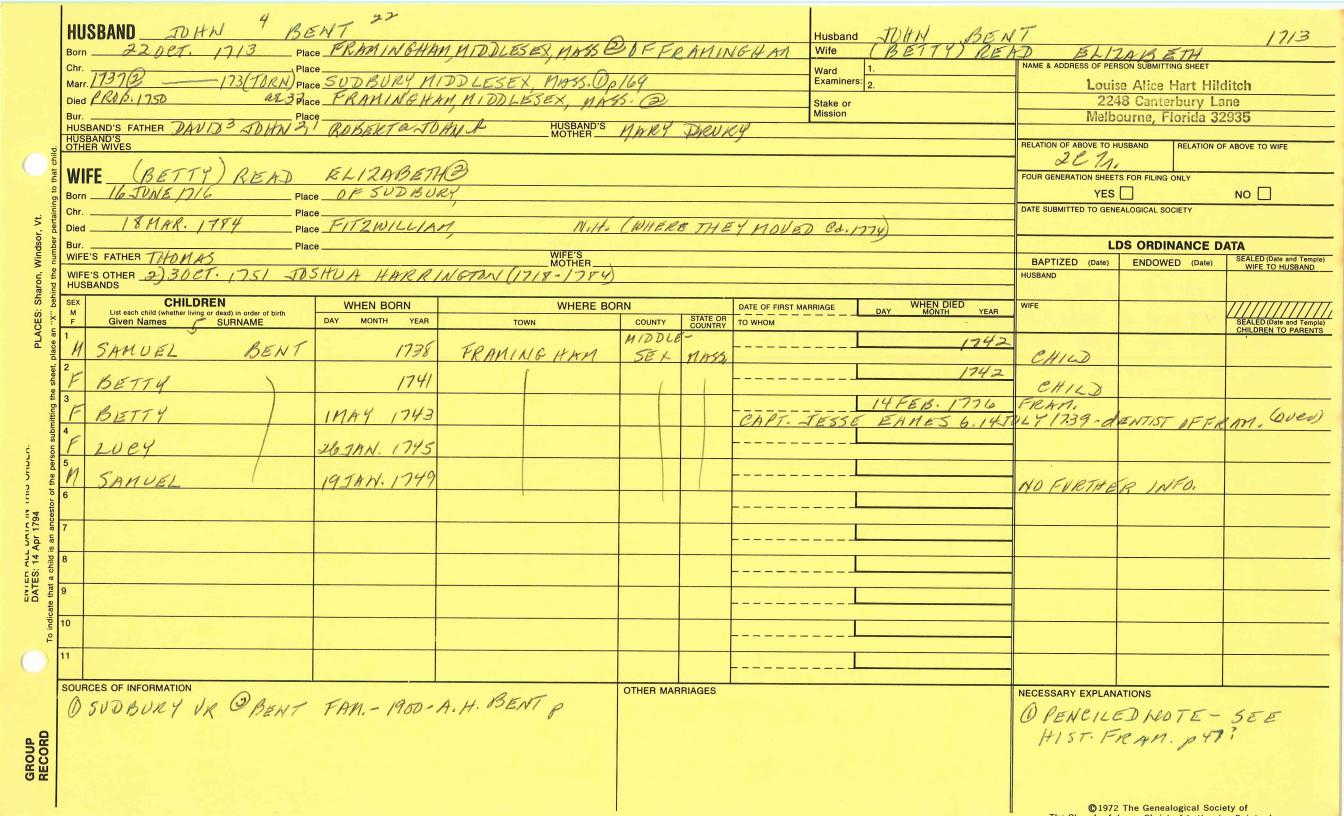 HUSBAND JOHN 4 BENT 22
Born 22 OCT. 1713 Place FRAMINGHAM, MIDDLESEX, MASS ② OF FRAMINGHAM
Chr. Place
Marr. 1737② 173(TORN) Place SUDBURY MIDDLESEX, MASS. ① p169
Died PROB. 1750 ae 37 Place FRAMINGHAM, MIDDLESEX, MASS. ②
Bur. Place
HUSBAND'S FATHER DAVID 3 JOHN 2, ROBERT JOHN HUSBAND'S MOTHER MARY DRURY
HUSBAND'S OTHER WIVES
WIFE (BETTY) READ ELIZABETH ②
Born 16 JUNE 1716 Place OF SUDBURY,
Chr. Place
Died 18 MAR. 1784 Place FITZWILLIAM, N.H. (WHERE THEY MOVED Ca. 1774)
Bur. Place
WIFE'S FATHER THOMAS WIFE'S MOTHER
WIFE'S OTHER HUSBANDS 2) 3 OCT. 1751 JOSHUA HARRINGTON (1718-1784)
Husband JOHN BENT 1713
Wife (BETTY) READ ELIZABETH
Ward Examiners: 1.
2.
Stake or Mission
NAME & ADDRESS OF PERSON SUBMITTING SHEET
Louise Alice Hart Hilditch
2248 Canterbury Lane
Melbourne, Florida 32935
RELATION OF ABOVE TO HUSBAND RELATION OF ABOVE TO WIFE
FOUR GENERATION SHEETS FOR FILING ONLY
YES NO
DATE SUBMITTED TO GENEALOGICAL SOCIETY
LDS ORDINANCE DATA
BAPTIZED (Date) ENDOWED (Date) SEALED (Date and Temple) WIFE TO HUSBAND
HUSBAND
WIFE
SEALED (Date and Temple) CHILDREN TO PARENTS
SEX M F CHILDREN WHEN BORN WHERE BORN DATE OF FIRST MARRIAGE WHEN DIED
List each child (whether living or dead) in order of birth
Given Names 5 SURNAME DAY MONTH YEAR TOWN COUNTY STATE OR COUNTRY TO WHOM DAY MONTH YEAR
1 M SAMUEL BENT 1738 FRAMINGHAM MIDDLE-SEX MASS 1742 CHILD
2 F BETTY 1741 1742 CHILD
3 F BETTY 1 MAY 1743 14 FEB. 1776 FRAM.
CAPT. JESSE EAMES b. 14 JULY 1739 - dENTIST OF FRAM.
4 F LUCY 26 JAN. 1745
5 M SAMUEL 19 JAN. 1749 NO FURTHER INFO.
6
7
8
9
10
11
SOURCES OF INFORMATION
① SUDBURY VR ② BENT FAM. - 1900 - A.H. BENT p
OTHER MARRIAGES
NECESSARY EXPLANATIONS
① PENCILED NOTE - SEE
HIST. FRAM. p47?
©1972 The Genealogical Society of
PLACES: Sharon, Windsor, Vt.
DATES: 14 Apr 1794
To indicate that a child is an ancestor of the person submitting the sheet, place an "X" behind the number pertaining to that child.
GROUP RECORD